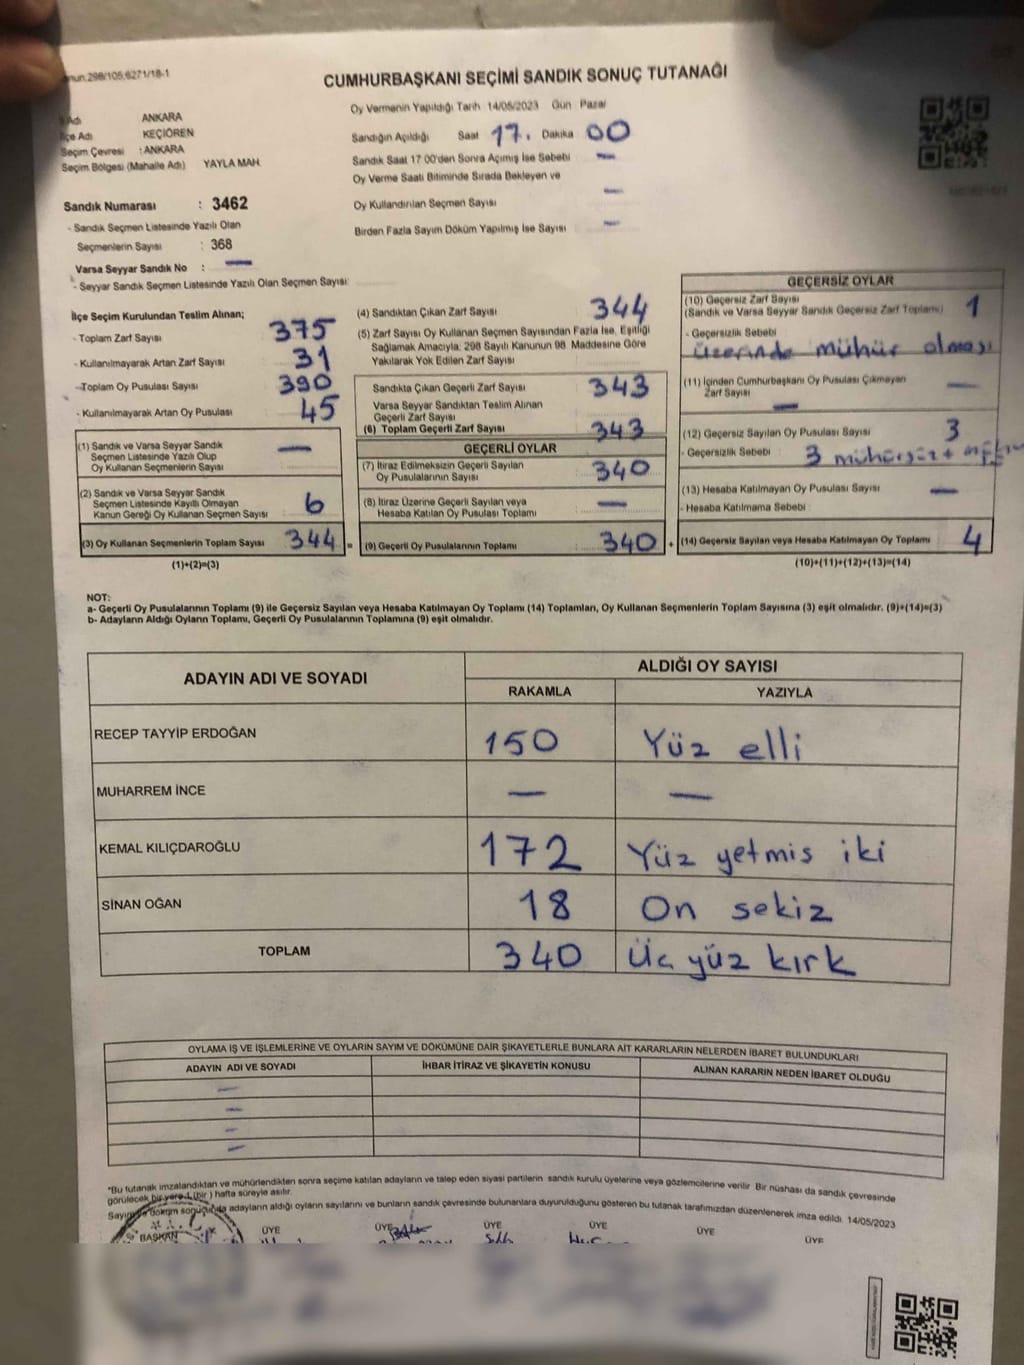 298/105;6271/18-1
CUMHURBAŞKANI SEÇİMİ SANDIK SONUÇ TUTANAĞI
Adı ANKARA
İlçe Adı KEÇİÖREN
Seçim Çevresi : ANKARA
Seçim Bölgesi (Mahalle Adı) YAYLA MAH.
Oy Vermenin Yapıldığı Tarih 14/05/2023 Gün Pazar
Sandığın Açıldığı Saat 17. Dakika 00
Sandık Saat 17 00'den Sonra Açımış İse Sebebi —
Oy Verme Saati Bitiminde Sırada Bekleyen ve
Oy Kullandırılan Seçmen Sayısı —
Birden Fazla Sayım Döküm Yapılmış İse Sayısı —
Sandık Numarası : 3462
- Sandık Seçmen Listesinde Yazılı Olan
Seçmenlerin Sayısı : 368
Varsa Seyyar Sandık No : —
- Seyyar Sandık Seçmen Listesinde Yazılı Olan Seçmen Sayısı:
İlçe Seçim Kurulundan Teslim Alınan;
- Toplam Zarf Sayısı 375
- Kullanılmayarak Artan Zarf Sayısı 31
- Toplam Oy Pusulası Sayısı 390
- Kullanılmayarak Artan Oy Pusulası 45
(1) Sandık ve Varsa Seyyar Sandık
Seçmen Listesinde Yazılı Olup
Oy Kullanan Seçmenlerin Sayısı —
(2) Sandık ve Varsa Seyyar Sandık
Seçmen Listesinde Kayıtlı Olmayan
Kanun Gereği Oy Kullanan Seçmen Sayısı 6
(3) Oy Kullanan Seçmenlerin Toplam Sayısı 344 =
(1)+(2)=(3)
(4) Sandıktan Çıkan Zarf Sayısı 344
(5) Zarf Sayısı Oy Kullanan Seçmen Sayısından Fazla İse, Eşitliği
Sağlamak Amacıyla; 298 Sayılı Kanunun 98. Maddesine Göre
Yakılarak Yok Edilen Zarf Sayısı
Sandıkta Çıkan Geçerli Zarf Sayısı 343
Varsa Seyyar Sandıktan Teslim Alınan
Geçerli Zarf Sayısı
(6) Toplam Geçerli Zarf Sayısı 343
GEÇERLİ OYLAR
(7) İtiraz Edilmeksizin Geçerli Sayılan
Oy Pusulalarının Sayısı 340
(8) İtiraz Üzerine Geçerli Sayılan veya
Hesaba Katılan Oy Pusulası Toplamı —
(9) Geçerli Oy Pusulalarının Toplamı 340 +
GEÇERSİZ OYLAR
(10) Geçersiz Zarf Sayısı
(Sandık ve Varsa Seyyar Sandık Geçersiz Zarf Toplamı) 1
- Geçersizlik Sebebi
üzerinde mühür olması
(11) İçinden Cumhurbaşkanı Oy Pusulası Çıkmayan
Zarf Sayısı —
(12) Geçersiz Sayılan Oy Pusulası Sayısı 3
- Geçersizlik Sebebi 3 mühürsüz +
(13) Hesaba Katılmayan Oy Pusulası Sayısı —
- Hesaba Katılmama Sebebi
(14) Geçersiz Sayılan veya Hesaba Katılmayan Oy Toplamı 4
(10)+(11)+(12)+(13)=(14)
NOT:
a- Geçerli Oy Pusulalarının Toplamı (9) ile Geçersiz Sayılan veya Hesaba Katılmayan Oy Toplamı (14) Toplamları, Oy Kullanan Seçmenlerin Toplam Sayısına (3) eşit olmalıdır. (9)+(14)=(3)
b- Adayların Aldığı Oyların Toplamı, Geçerli Oy Pusulalarının Toplamına (9) eşit olmalıdır.
ADAYIN ADI VE SOYADI ALDIĞI OY SAYISI
RAKAMLA YAZIYLA
RECEP TAYYİP ERDOĞAN 150 Yüz elli
MUHARREM İNCE — —
KEMAL KILIÇDAROĞLU 172 Yüz yetmis iki
SİNAN OĞAN 18 On sekiz
TOPLAM 340 Üç yüz kırk
OYLAMA İŞ VE İŞLEMLERİNE VE OYLARIN SAYIM VE DÖKÜMÜNE DAİR ŞİKAYETLERLE BUNLARA AİT KARARLARIN NELERDEN İBARET BULUNDUKLARI
ADAYIN ADI VE SOYADI İHBAR İTİRAZ VE ŞİKAYETİN KONUSU ALINAN KARARIN NEDEN İBARET OLDUĞU
—
—
—
—
*Bu tutanak imzalandıktan ve mühürlendikten sonra seçime katılan adayların ve talep eden siyasi partilerin sandık kurulu üyelerine veya gözlemcilerine verilir. Bir nüshası da sandık çevresinde
görülecek bir yere 1 (bir ) hafta süreyle asılır.
Sayım ve döküm sonucunda adayların aldığı oyların sayılarını ve bunların sandık çevresinde bulunanlara duyurulduğunu gösteren bu tutanak tarafımızdan düzenlenerek imza edildi. 14/05/2023
BAŞKAN ÜYE ÜYE ÜYE ÜYE ÜYE ÜYE